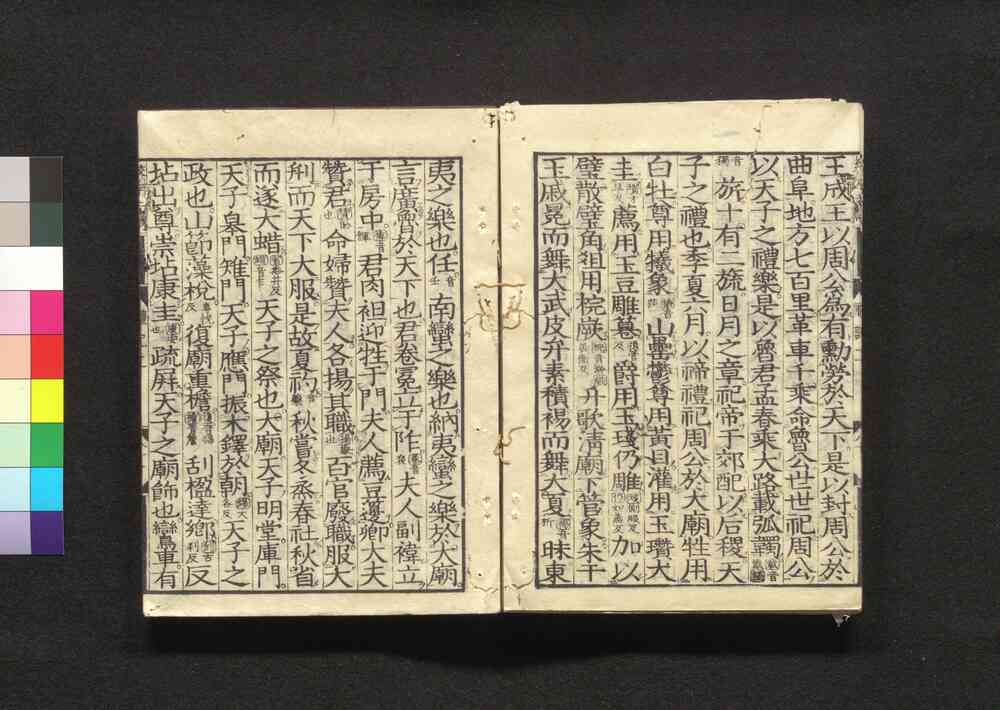 王成王以周公為有勳勞於天下是以封周公於
曲阜地方七百里革車千乘命魯公世世祀周公
以天子之禮樂是以魯君孟春乘大路載弧韣
旂十有二旒日月之章祀帝于郊配以后稷天
子之禮也季夏六月以禘禮祀周公於大廟牲用
白牡尊用犧象山罍鬱尊用黃目灌用玉瓚大
圭薦用玉豆雕篹爵用玉琖仍雕加以
璧散璧角俎用梡嶡升歌清廟下管象朱干
玉戚冕而舞大武皮弁素積裼而舞大夏昧東
夷之樂也任南蠻之樂也納夷蠻之樂於大廟
言廣魯於天下也君卷冕立于阼夫人副褘立
于房中君肉袒迎牲于門夫人薦豆籩卿大夫
贊君命婦贊夫人各揚其職百官廢職服大
刑而天下大服是故夏礿秋嘗冬烝春社秋省
而遂大蜡天子之祭也大廟天子明堂庫門
天子皋門雉門天子應門振木鐸於朝天子之
政也山節藻梲復廟重檐刮楹達鄉反
坫出尊崇坫康圭疏屏天子之廟飾也鸞車有